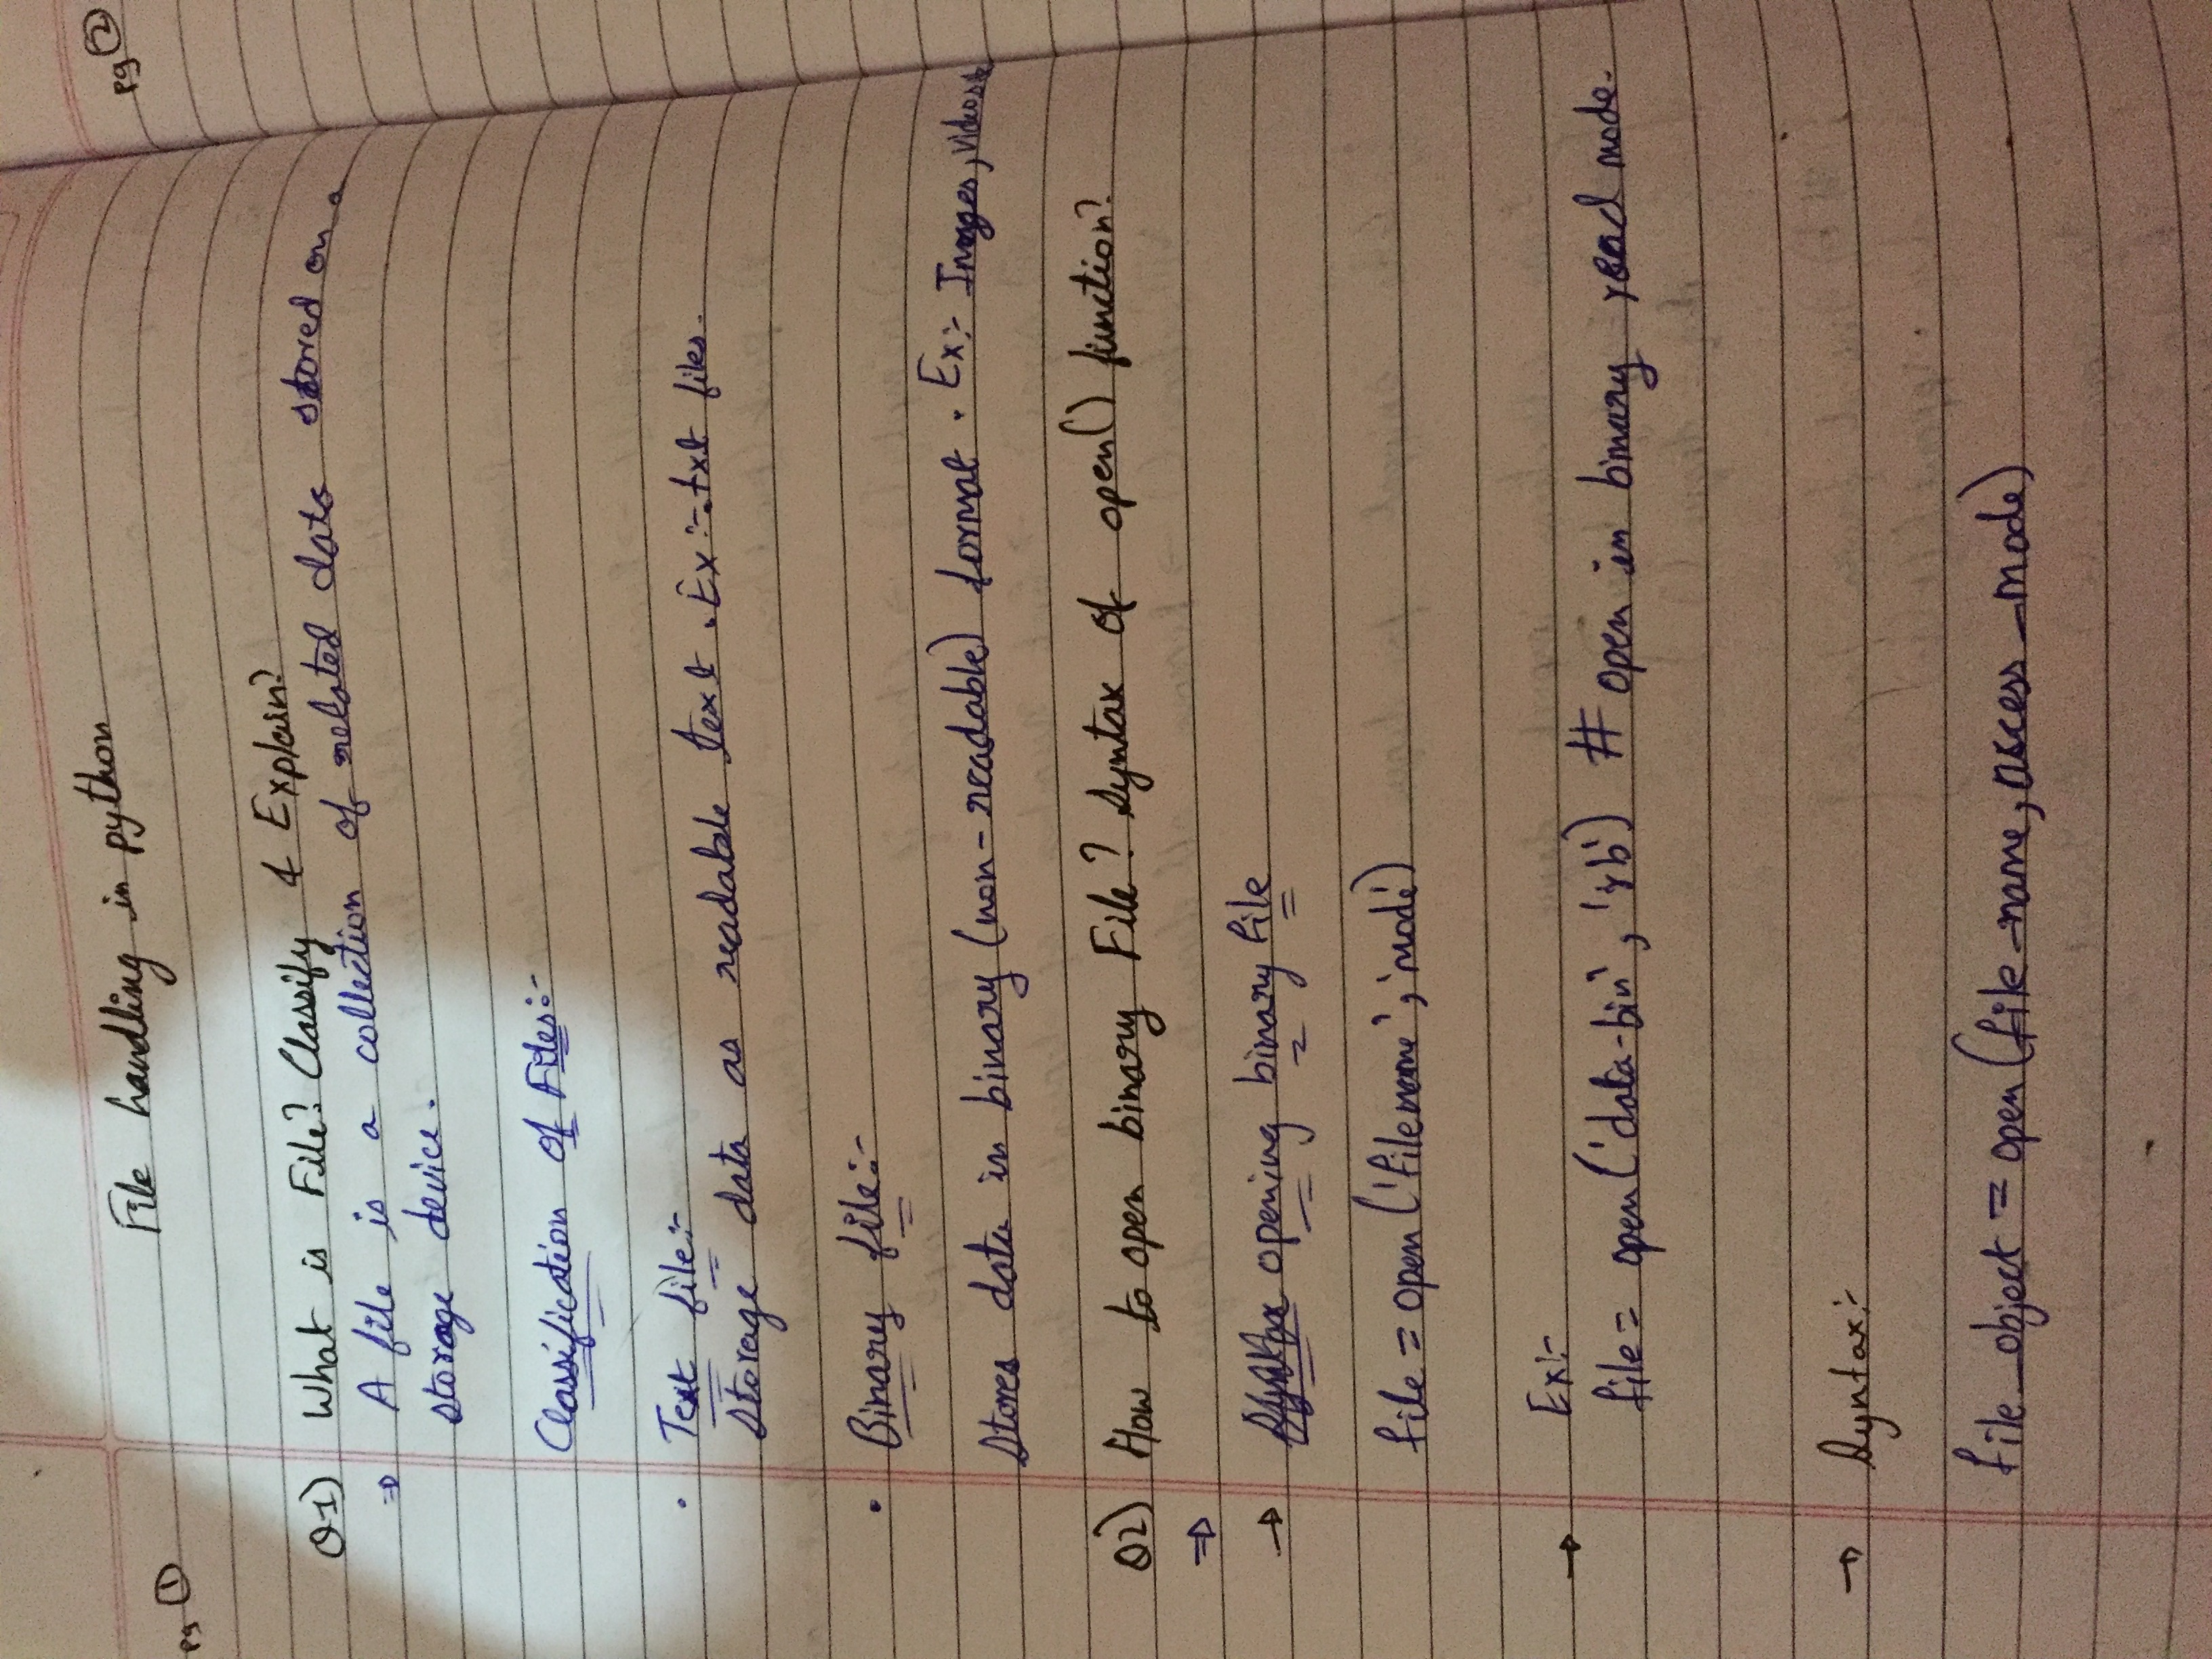 File handling in python
pg ①
pg ②
Q1) What is File? Classify & Explain?
⇒ A file is a collection of related data stored on a
storage device.
Classification of Files:-
• Text file:-
Storage data as readable text. Ex:- .txt files.
• Binary file:-
Stores data in binary (non-readable) format. Ex:- Images, Videos
Q2) How to open binary File? Syntax of open() function?
⇒
→ opening binary file
file = open('filename', 'mode')
→ Ex:-
file = open('data-bin', 'rb') # open in binary read mode.
→ Syntax:-
file_object = open(file_name, access_mode)